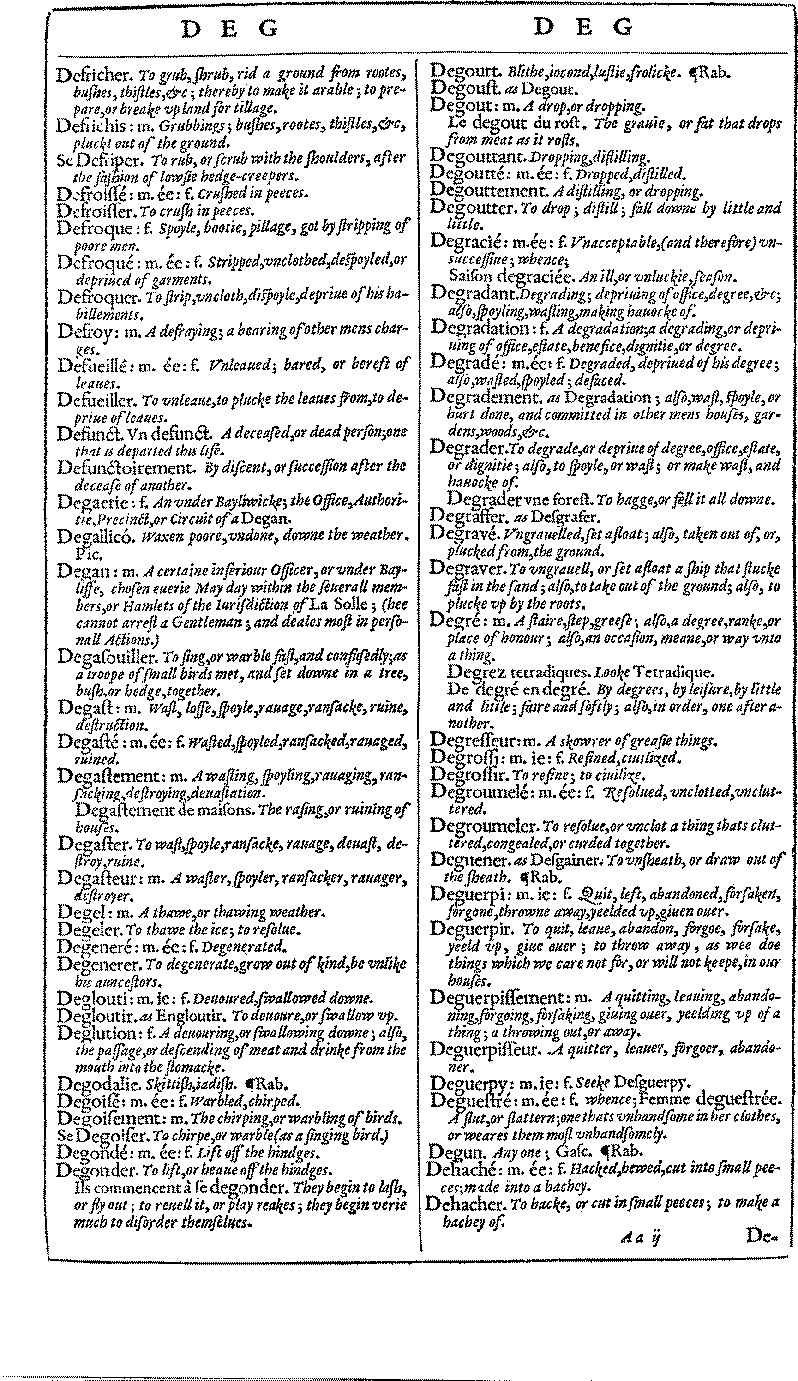 D E G
Defricher. To grub, ſhrub, rid a ground from rootes,
buſhes, thiſtles,&c; thereby to make it arable; to pre-
pare,or breake vp land for tillage.
Defrichis: m. Grubbings; buſhes,rootes, thiſtles,&c,
pluckt out of the ground.
Se Defriper. To rub, or ſcrub with the ſhoulders, after
the faſhion of lowſie hedge-creepers.
Defroiſſé: m. ée: f. Cruſhed in peeces.
Defroiſſer. To cruſh in peeces.
Defroque: f. Spoyle, bootie, pillage, got by ſtripping of
poore men.
Defroqué: m. ée: f. Stripped,vnclothed,deſpoyled,or
depriued of garments.
Defroquer. To ſtrip,vncloth,diſpoyle,depriue of his ha-
billements.
Defroy: m. A defraying; a bearing of other mens char-
ges.
Defueillé: m. ée: f. Vnleaued; bared, or bereft of
leaues.
Defueiller. To vnleaue,to plucke the leaues from,to de-
priue of leaues.
Defunct. Vn defunct. A deceaſed,or dead perſon;one
that is departed this life.
Defunctoirement. By diſcent, or ſucceſſion after the
deceaſe of another.
Degaerie: f. An vnder Bayliwicke; the Office,Authori-
tie,Precinct,or Circuit of a Degan.
Degallicó. Waxen poore,vndone, downe the weather.
Pic.
Degan: m. A certaine inferiour Officer, or vnder Bay-
liffe, choſen euerie May day within the ſeuerall mem-
bers,or Hamlets of the Iuriſdiction of La Solle; (hee
cannot arreſt a Gentleman; and deales moſt in perſo-
nall Actions.)
Degaſouiller. To ſing,or warble faſt,and confuſedly;as
a troope of ſmall birds met, and ſet downe in a tree,
buſh,or hedge,together.
Degaſt: m. Waſt, loſſe, ſpoyle, rauage, ranſacke, ruine,
deſtruction.
Degaſté: m. ée: f. Waſted,ſpoyled,ranſacked,rauaged,
ruined.
Degaſtement: m. A waſting, ſpoyling,rauaging, ran-
ſacking,deſtroying,deuaſtation.
Degaſtement de maiſons. The raſing,or ruining of
houſes.
Degaſter. To waſt,ſpoyle,ranſacke, rauage, deuaſt, de-
ſtroy,ruine.
Degaſteur: m. A waſter, ſpoyler, ranſacker, rauager,
deſtroyer.
Degel: m. A thawe,or thawing weather.
Degeler. To thawe the ice; to reſolue.
Degeneré: m. ée: f. Degenerated.
Degenerer. To degenerate,grow out of kind,be vnlike
his aunceſtors.
Deglouti: m. ie: f. Deuoured,ſwallowed downe.
Degloutir. as Engloutir. To deuoure,or ſwallow vp.
Deglution: f. A deuouring,or ſwallowing downe; alſo,
the paſſage,or deſcending of meat and drinke from the
mouth into the ſtomacke.
Degodalie. Skittiſh,iadiſh. ¶Rab.
Degoiſé: m. ée: f. Warbled,chirped.
Degoiſement: m. The chirping,or warbling of birds.
Se Degoiſer. To chirpe,or warble(as a ſinging bird.)
Degondé: m. ée: f. Lift off the hindges.
Degonder. To lift,or heaue off the hindges.
Ils commencent à ſe degonder. They begin to laſh,
or fly out; to reuell it, or play reakes; they begin verie
much to diſorder themſelues.
D E G
Degourt. Blithe,iocond,luſtie,frolicke. ¶Rab.
Degouſt. as Degout.
Degout: m. A drop,or dropping.
Le degout du roſt. The grauie, or fat that drops
from meat as it roſts.
Degouttant. Dropping,diſtilling.
Degoutté: m. ée: f. Dropped,diſtilled.
Degouttement. A diſtilling, or dropping.
Degoutter. To drop; diſtill; fall downe by little and
little.
Degracié: m.ée: f. Vnacceptable,(and therefore) vn-
ſucceſſiue; whence;
Saiſon degraciée. An ill,or vnluckie,ſeaſon.
Degradant.Degrading; depriuing of office,degree,&c;
alſo,ſpoyling,waſting,making hauocke of.
Degradation: f. A degradation;a degrading,or depri-
uing of office,eſtate,benefice,dignitie,or degree.
Degradé: m.ée: f. Degraded,depriued of his degree;
alſo,waſted,ſpoyled; defaced.
Degradement. as Degradation; alſo,waſt, ſpoyle, or
hurt done, and committed in other mens houſes, gar-
dens,woods,&c.
Degrader.To degrade,or depriue of degree,office,eſtate,
or dignitie; alſo, to ſpoyle, or waſt; or make waſt, and
hauocke of.
Degrader vne foreſt. To hagge,or fell it all downe.
Degraffer. as Deſgrafer.
Degravé. Vngrauelled,ſet afloat; alſo, taken out of, or,
plucked from,the ground.
Degraver. To vngrauell, or ſet afloat a ſhip that ſtucke
faſt in the ſand; alſo,to take out of the ground; alſo, to
plucke vp by the roots.
Degré: m. A ſtaire,ſtep,greeſe; alſo,a degree,ranke,or
place of honour; alſo,an occaſion, meane,or way vnto
a thing.
Degrez tetradiques. Looke Tetradique.
De degré en degré. By degrees, by leiſure,by little
and little; faire and ſoftly; alſo,in order, one after a-
nother.
Degreſſeur:m. A skowrer of greaſie things.
Degroſſi: m. ie: f. Refined,ciuilized.
Degroſſir. To refine; to ciuilize.
Degroumelé: m. ée: f. Reſolued, vnclotted,vnclut-
tered.
Degroumeler. To reſolue,or vnclot a thing thats clut-
tered,congealed,or curded together.
Deguener. as Deſgainer. To vnſheath, or draw out of
the ſheath. ¶Rab.
Deguerpi: m. ie: f. Quit, left, abandoned, forſaken,
forgone,throwne away,yeelded vp,giuen ouer.
Deguerpir. To quit, leaue, abandon, forgoe, forſake,
yeeld vp, giue ouer; to throw away, as wee doe
things which we care not for, or will not keepe,in our
houſes.
Deguerpiſſement: m. A quitting, leauing, abando-
ning,forgoing,forſaking, giuing ouer, yeelding vp of a
thing; a throwing out,or away.
Deguerpiſſeur. A quitter, leauer, forgoer, abando-
ner.
Deguerpy: m. ie: f. Seeke Deſguerpy.
Degueſtré: m. ée: f. whence; Femme degueſtrée.
A ſlut,or ſlattern;one thats vnhandſome in her clothes,
or weares them moſt vnhandſomely.
Degun. Any one; Gaſc. ¶Rab.
Dehaché: m. ée: f. Hacked,hewed,cut into ſmall pee-
ces;made into a hachey.
Dehacher. To hacke, or cut in ſmall peeces; to make a
hachey of.
A a ij De-